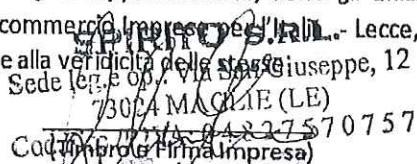 commercio Imprese per l'Italia.- Lecce,
SPIRITO S.R.L.
e alla veridicità delle stesse
Sede leg. e op.: Via San Giuseppe, 12
73024 MAGLIE (LE)
04827570757
(Timbro e Firma Impresa)